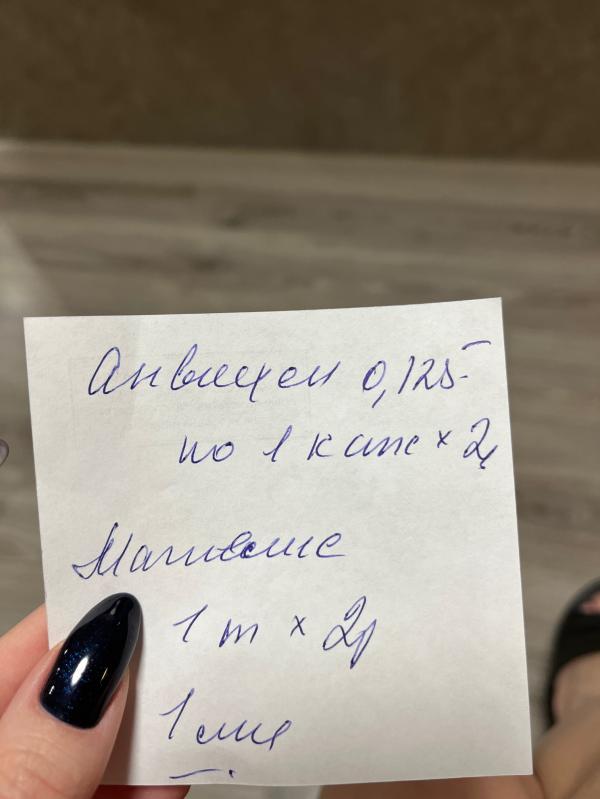 Анвифен 0,125
по 1 капс × 2р
Магнелис
1 т × 2р
1 мец